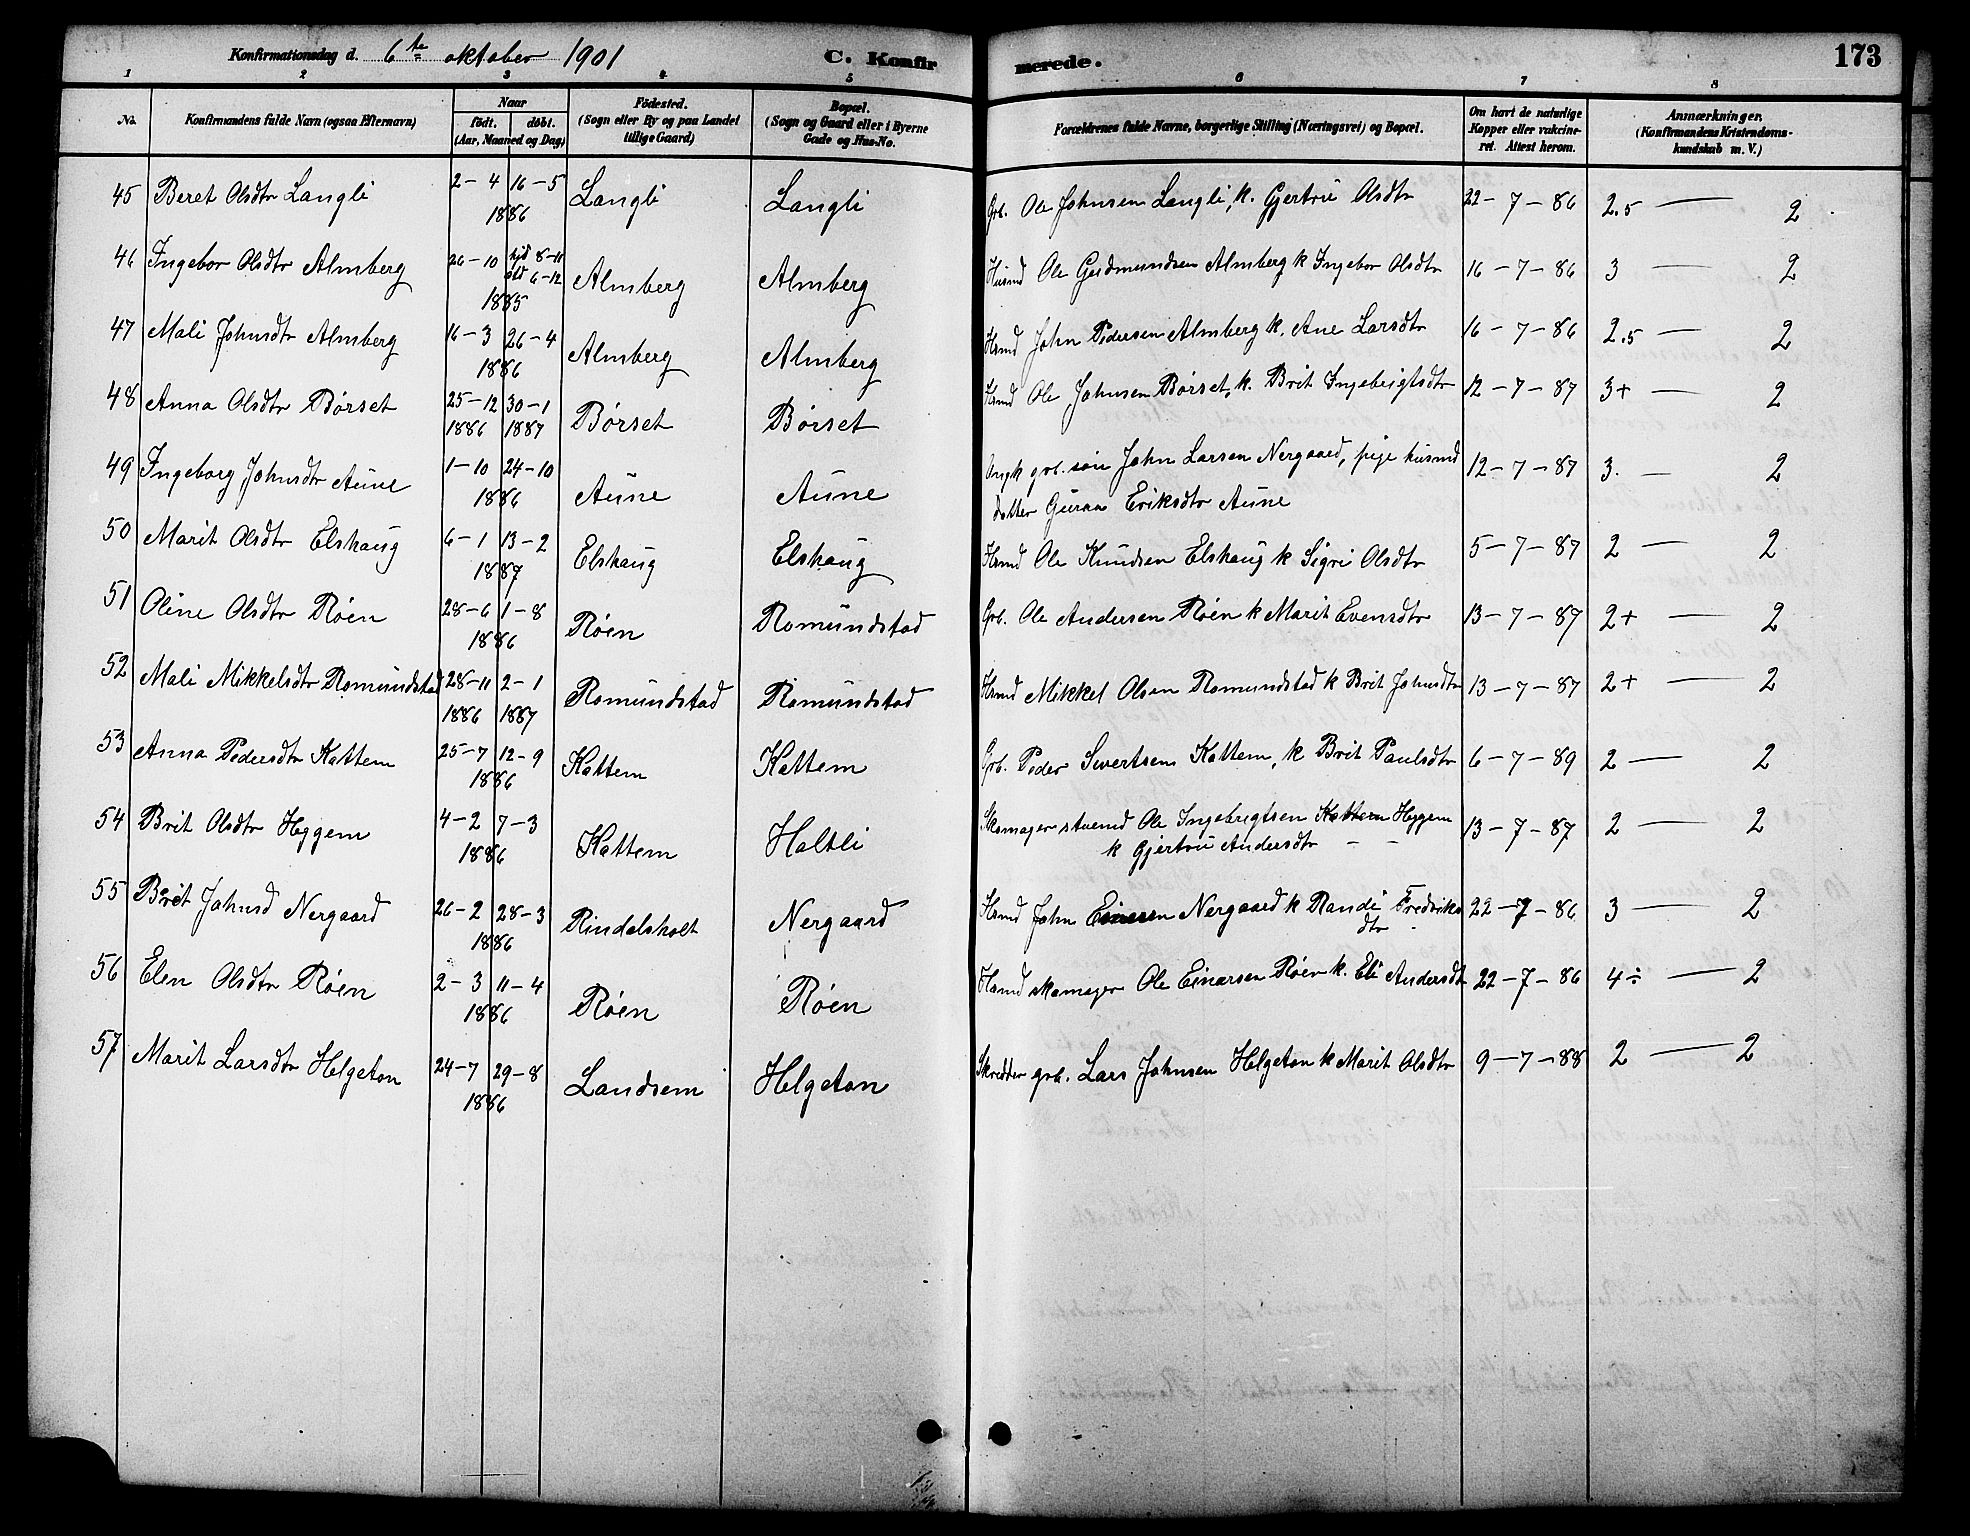 Konfirmationsdag d. 6te oktober 1901 C. Konfirmerede. 173
1 2 3 4 5 6 7 8
No. Konfirmandens fulde Navn (ogsaa Efternavn) Naar födt. döbt. (Aar, Maaned og Dag) Födested. (Sogn eller By og paa Landet tillige Gaard) Bopæl. (Sogn og Gaard eller i Byerne Gade og Hus-No. Forældrenes fulde Navne, borgerlige Stilling (Næringsvei) og Bopæl. Om havt de naturlige Kopper eller vakcineret. Attest herom. Anmærkninger. (Konfirmandens Kristendomskundskab m. V.)
45 Beret Olsdtr Langli 2-4 16-5 1886 Langli Langli Grb. Ole Johnsen Langli, k. Gjertru Olsdtr 22-7-86 2.5 — 2
46 Ingebor Olsdtr Almberg 26-10 hjd 8-11 døbt 6-12 1885 Almberg Almberg Husmd Ole Gudmundsen Almberg k Ingebor Olsdtr 16-7-86 3 — 2
47 Mali Johnsdtr Almberg 16-3 26-4 1886 Almberg Almberg Hsmd John Pedersen Almberg k. Ane Larsdtr 16-7-86 2.5 — 2
48 Anna Olsdtr Børset 25-12 1886 30-1 1887 Børset Børset Hsmd Ole Johnsen Børset, k. Brit Ingebrigtsdtr 12-7-87 3+ — 2
49 Ingeborg Johnsdtr Aune 1-10 24-10 1886 Aune Aune Ungk grb. søn John Larsen Nergaard, pige husmd
datter Guraa Eriksdtr Aune 12-7-87 3. — 2
50 Marit Olsdtr Elshaug 6-1 13-2 1887 Elshaug Elshaug Hsmd Ole Knudsen Elshaug k Sigri Olsdtr 5-7-87 2 — 2
51 Oline Olsdtr Røen 28-6 1-8 1886 Røen Romundstad Grb. Ole Andersen Røen k Marit Evensdtr 13-7-87 2+ — 2
52 Mali Mikkelsdtr Romundstad 28-11 1886 2-1 1887 Romundstad Romundstad Hsmd Mikkel Olsen Romundstad k Brit Johnsdtr 13-7-87 2+ — 2
53 Anna Pedersdtr Kattem 25-7 12-9 1886 Kattem Kattem Grb. Peder Sivertsen Kattem, k Brit Paulsdtr 6-7-89 2 — 2
54 Brit Olsdtr Heggem 4-2 7-3 1886 Kattem Holtli Skomager stuemd Ole Ingebrigtsen Kattem Heggem
k Gjertru Andersdtr 13-7-87 2 — 2
55 Brit Johnsd Nergaard 26-2 28-3 1886 Rindalsholt Nergaard Hsmd John Einersen Nergaard k Randi Fredriks
dtr 22-7-86 3 — 2
56 Elen Olsdtr Røen 2-3 11-4 1886 Røen Røen Hsmd skomager Ole Einarsen Røen k. Eli Andersdt 22-7-86 4÷ — 2
57 Marit Larsdtr Helgeton 24-7 29-8 1886 Landsem Helgeton Skredder grb. Lars Johnsen Helgeton k Marit Olsdtr 9-7-88 2 — 2